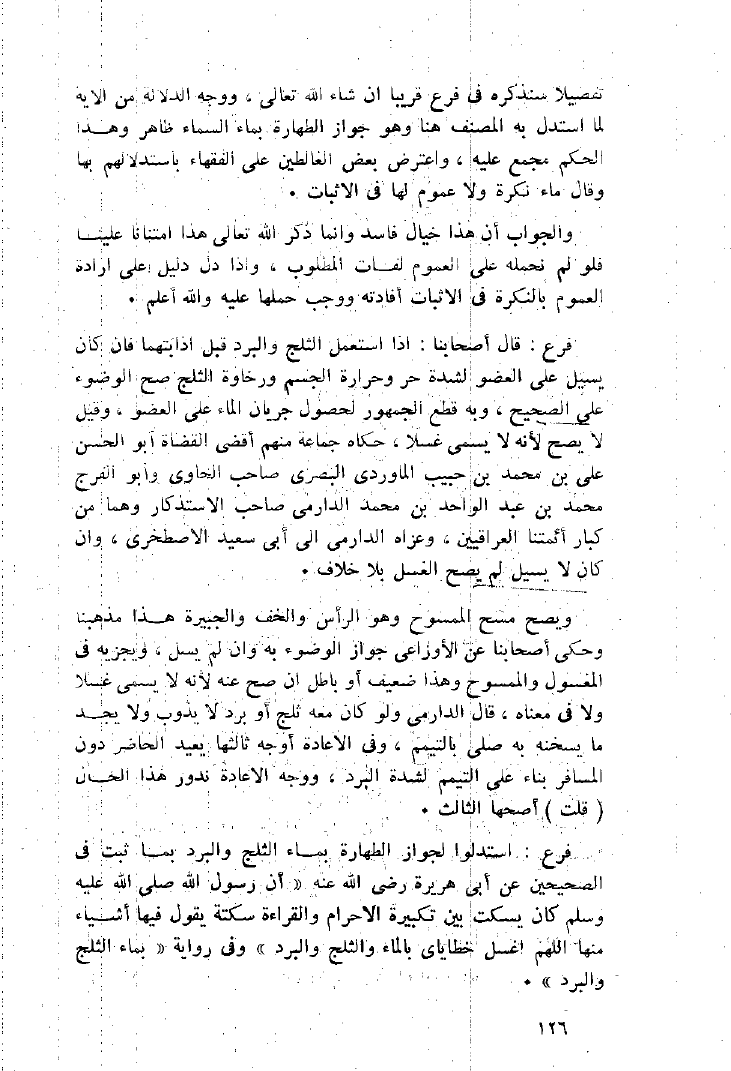 تفصيلا سنذكره فى فرع قريبا ان شاء الله تعالى ، ووجه الدلالة من الاية
لما استدل به المصنف هنا وهو جواز الطهارة بماء السماء ظاهر وهـذا
الحكم مجمع عليه ، واعترض بعض الغالطين على الفقهاء باستدلالهم بها
وقال ماء نكرة ولا عموم لها فى الاثبات •
والجواب أن هذا خيال فاسد وانما ذكر الله تعالى هذا امتنانا علينـا
فلو لم نحمله على العموم لفـات المطلوب ، واذا دل دليل على ارادة
العموم بالنكرة فى الاثبات أفادته ووجب حملها عليه والله أعلم •
فرع : قال أصحابنا : اذا استعمل الثلج والبرد قبل اذابتهما فان كان
يسيل على العضو لشدة حر وحرارة الجسم ورخاوة الثلج صح الوضوء
على الصحيح ، وبه قطع الجمهور لحصول جريان الماء على العضو ، وقيل
لا يصح لأنه لا يسمى غسلا ، حكاه جماعة منهم أقضى القضاة أبو الحسن
على بن محمد بن حبيب الماوردى البصرى صاحب الحاوى وأبو الفرج
محمد بن عبد الواحد بن محمد الدارمى صاحب الاستذكار وهما من
كبار أئمتنا العراقيين ، وعزاه الدارمى الى أبى سعيد الاصطخرى ، وان
كان لا يسيل لم يصح الغسل بلا خلاف •
ويصح مسح الممسوح وهو الرأس والخف والجبيرة هـذا مذهبنا
وحكى أصحابنا عن الأوزاعى جواز الوضوء به وان لم يسل ، ويجزيه فى
المغسول والممسوح وهذا ضعيف أو باطل ان صح عنه لأنه لا يسمى غسلا
ولا فى معناه ، قال الدارمى ولو كان معه ثلج أو برد لا يذوب ولا يجـد
ما يسخنه به صلى بالتيمم ، وفى الاعادة أوجه ثالثها يعيد الحاضر دون
المسافر بناء على التيمم لشدة البرد ، ووجه الاعادة ندور هذا الحـال
( قلت ) أصحها الثالث •
فرع : استدلوا لجواز الطهارة بمـاء الثلج والبرد بمـا ثبت فى
الصحيحين عن أبى هريرة رضى الله عنه « أن رسول الله صلى الله عليه
وسلم كان يسكت بين تكبيرة الاحرام والقراءة سكتة يقول فيها أشـياء
منها اللهم اغسل خطاياى بالماء والثلج والبرد » وفى رواية « بماء الثلج
والبرد » •
١٢٦